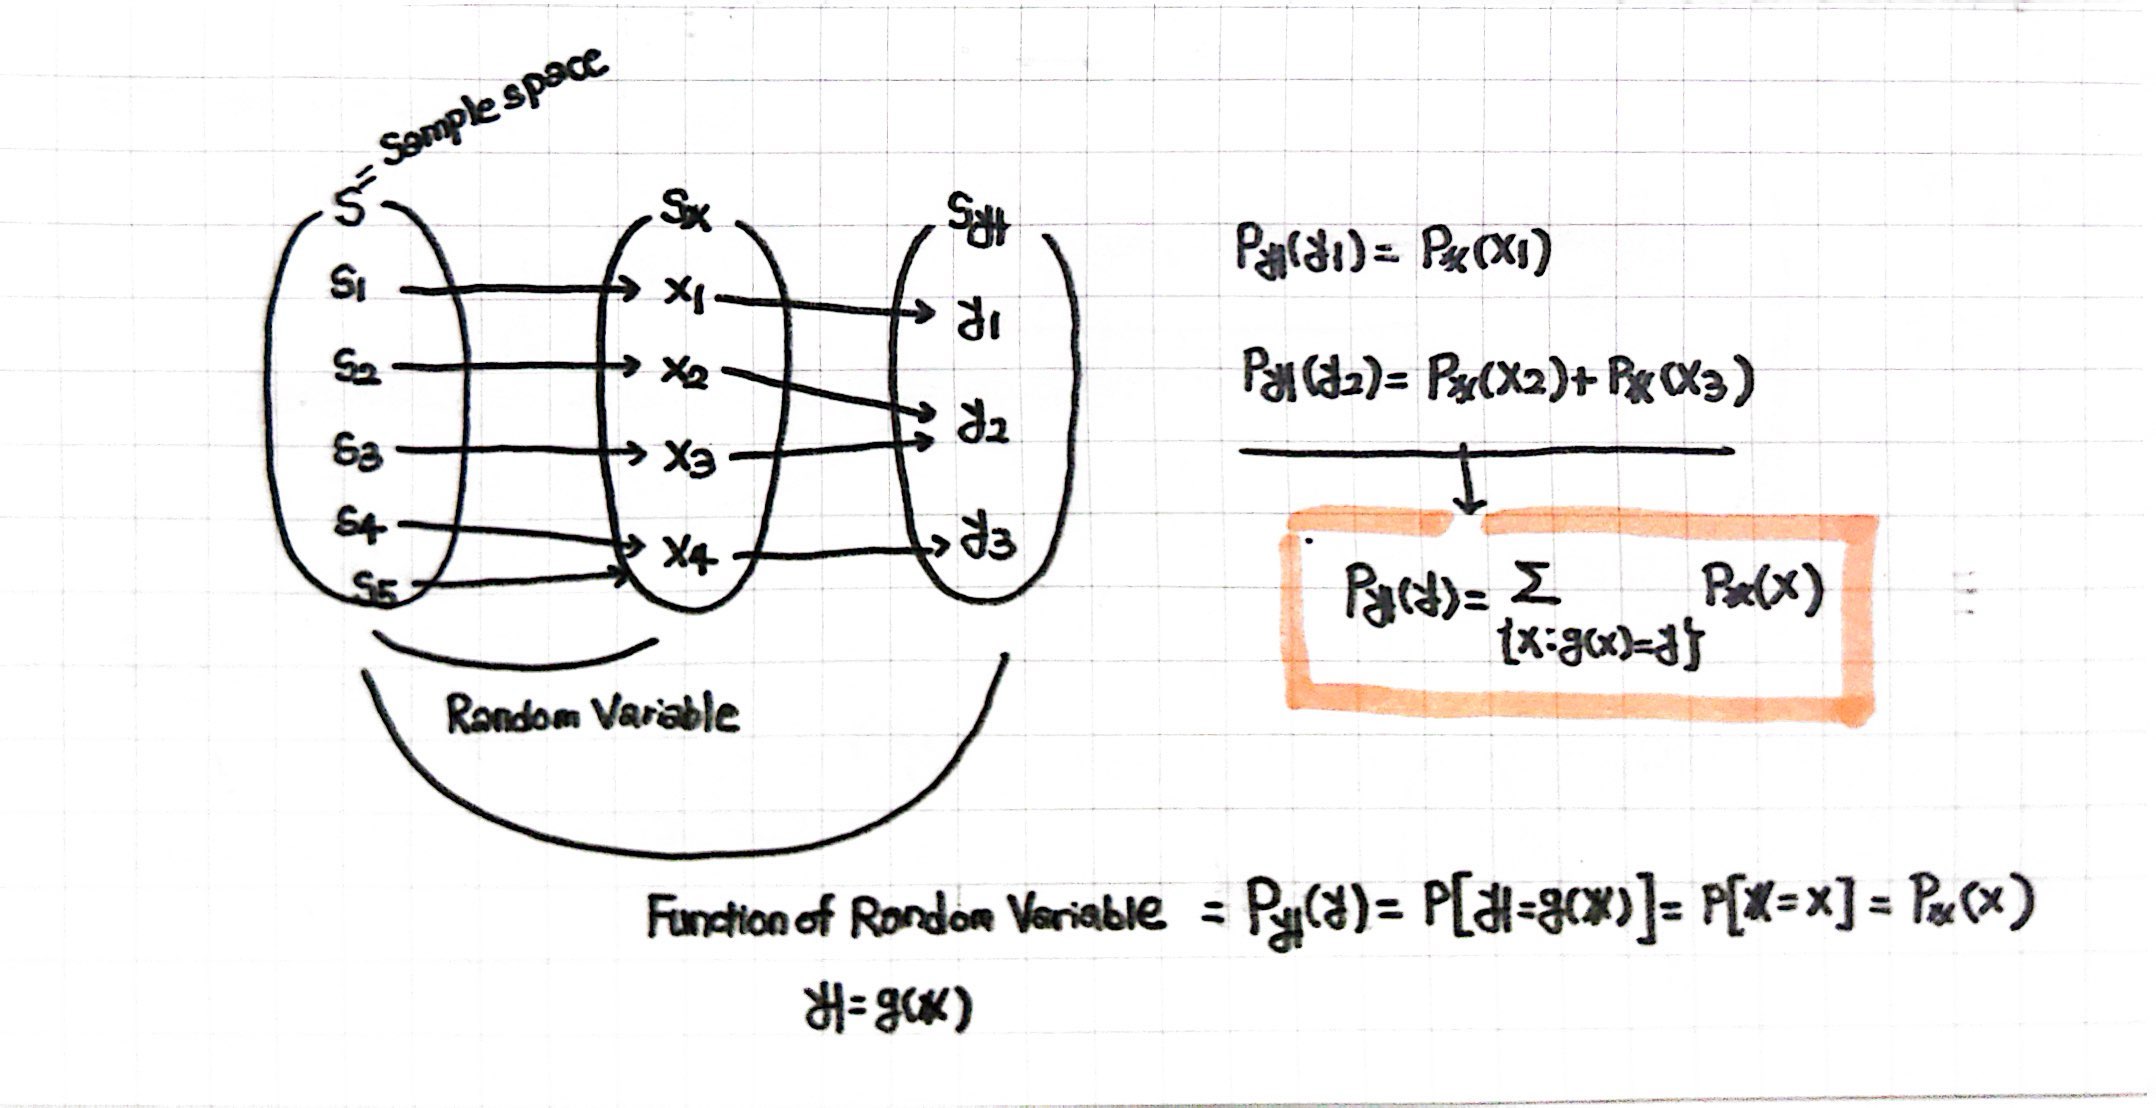 S = Sample space
S Sx Sy
S1 x1 y1
S2 x2 y2
S3 x3
S4 x4 y3
S5
Random Variable
Py(y1) = Px(x1)
Py(y2) = Px(x2) + Px(x3)
Py(y) = Σ Px(x)
{x:g(x)=y}
Function of Random Variable = Py(y) = P[y=g(x)] = P[X=x] = Px(x)
y = g(x)